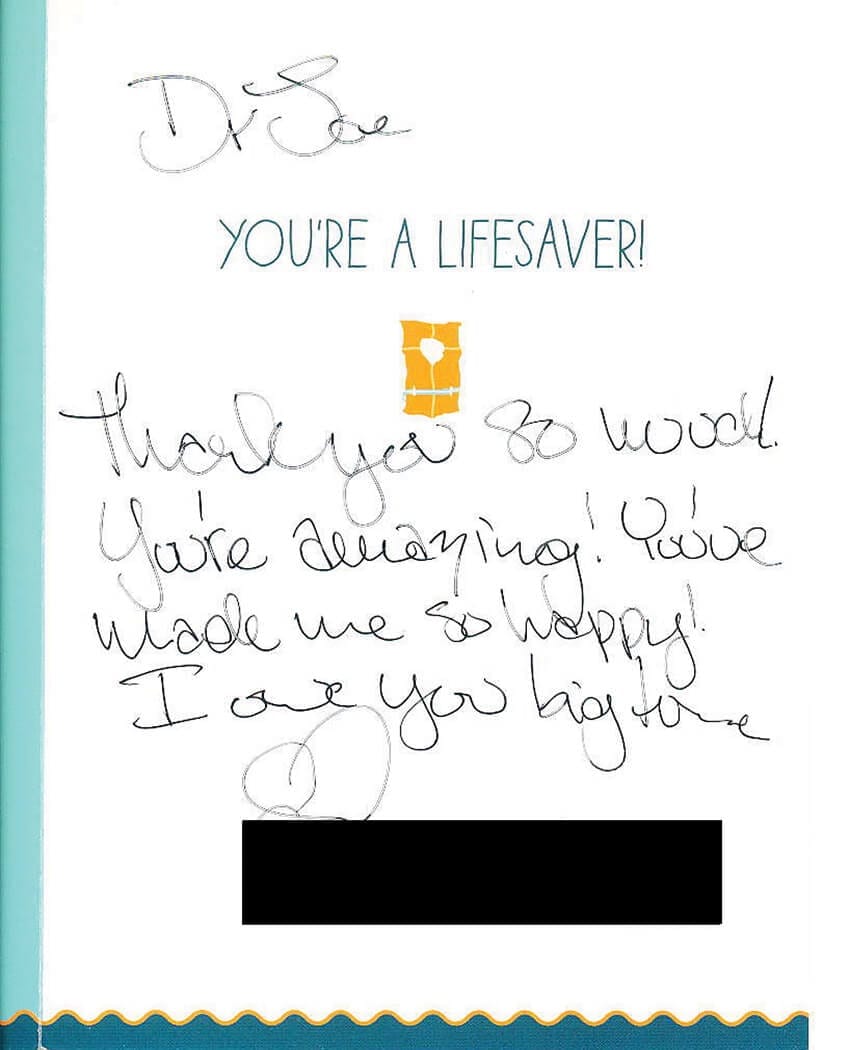 Dr Joe
YOU'RE A LIFESAVER!
Thank you so much.
You're amazing! You've
made me so happy!
I owe you big time